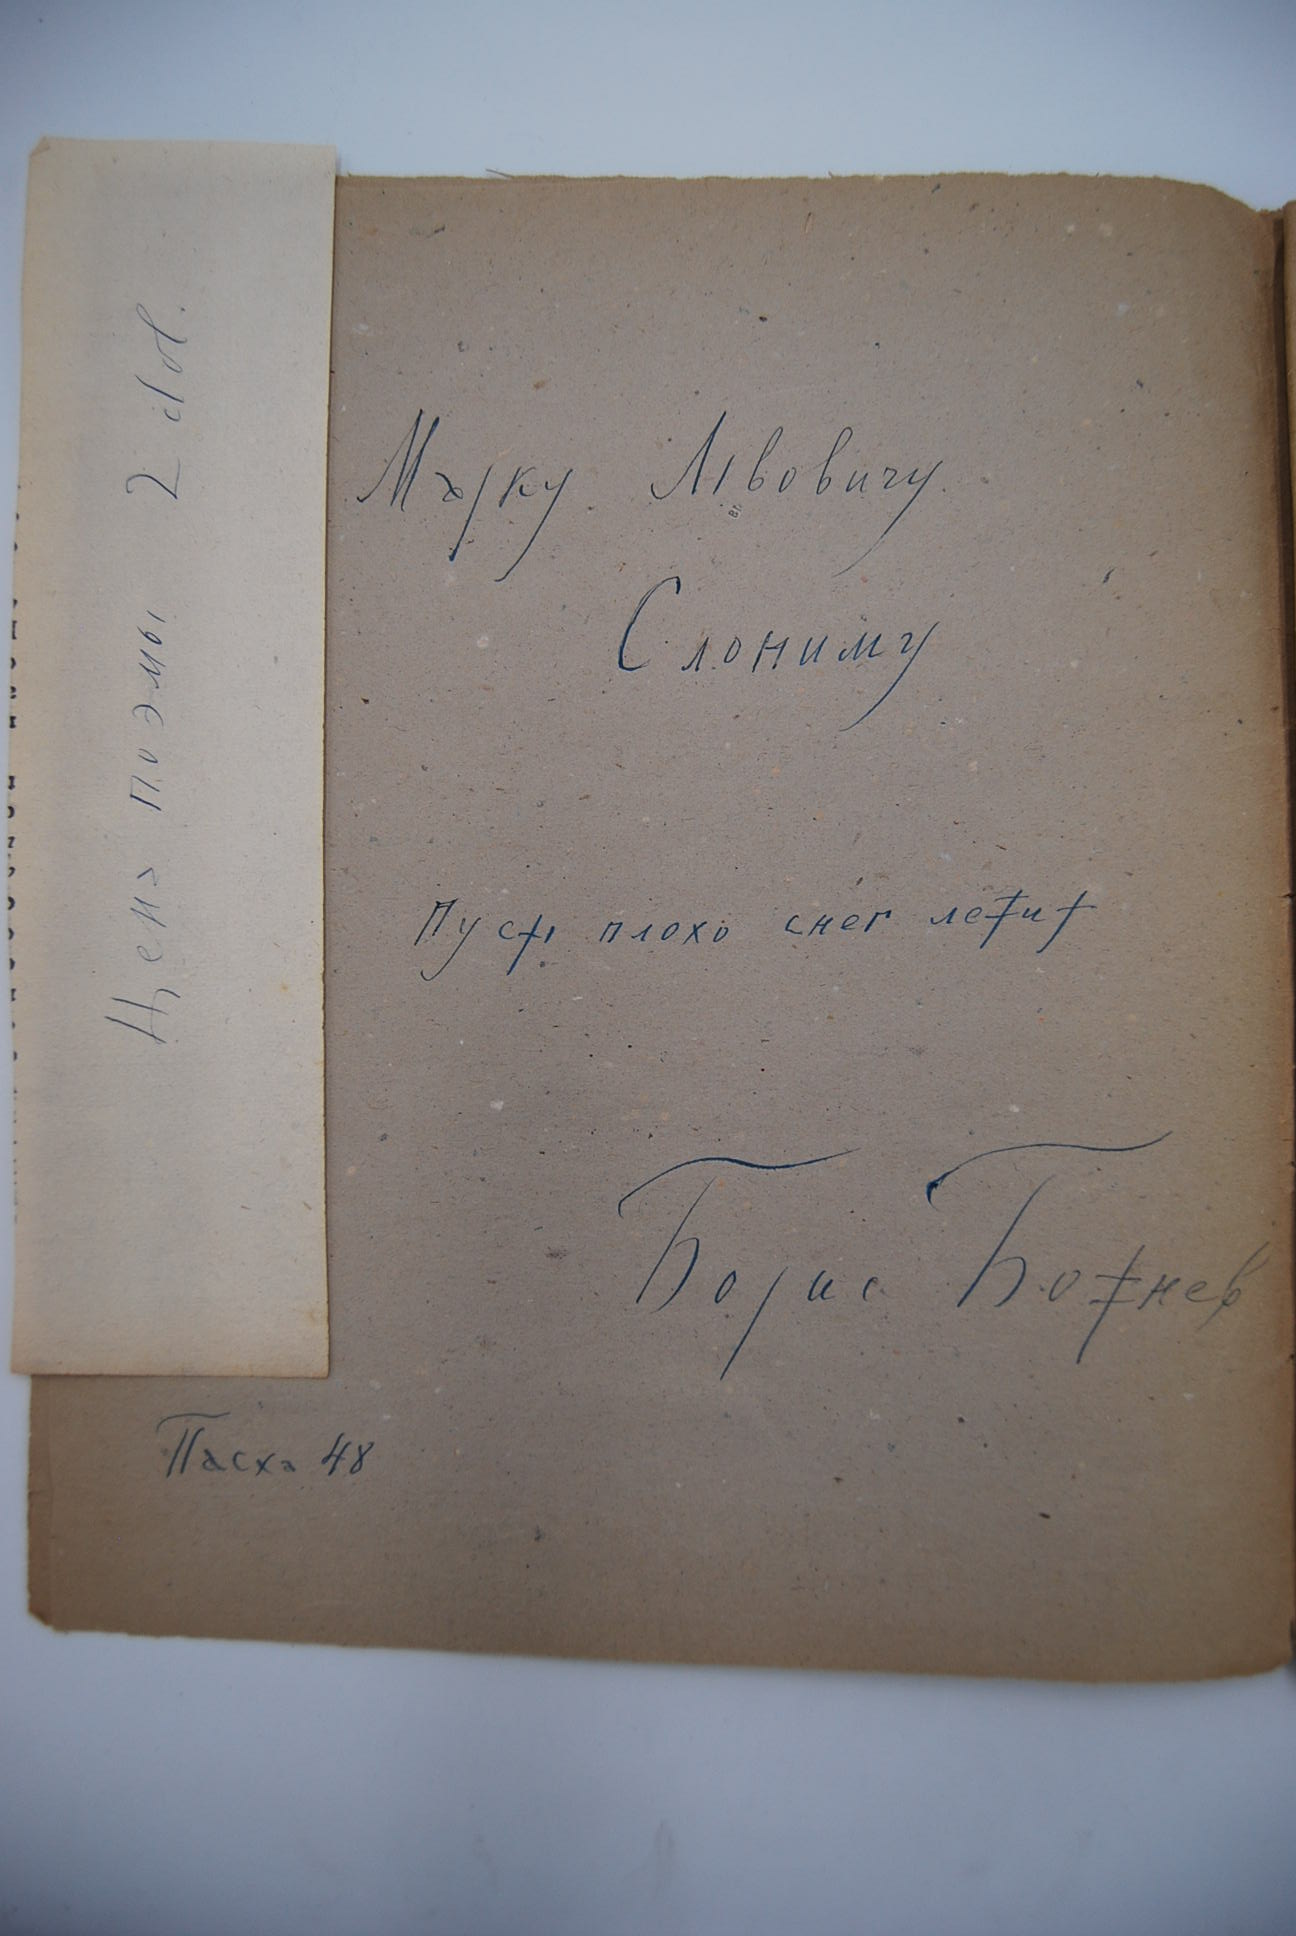 Цена поэмы 2 dol.
Марку Львовичу
Слониму
Пусть плохо снег летит
Борис Божнев
Пасха 48